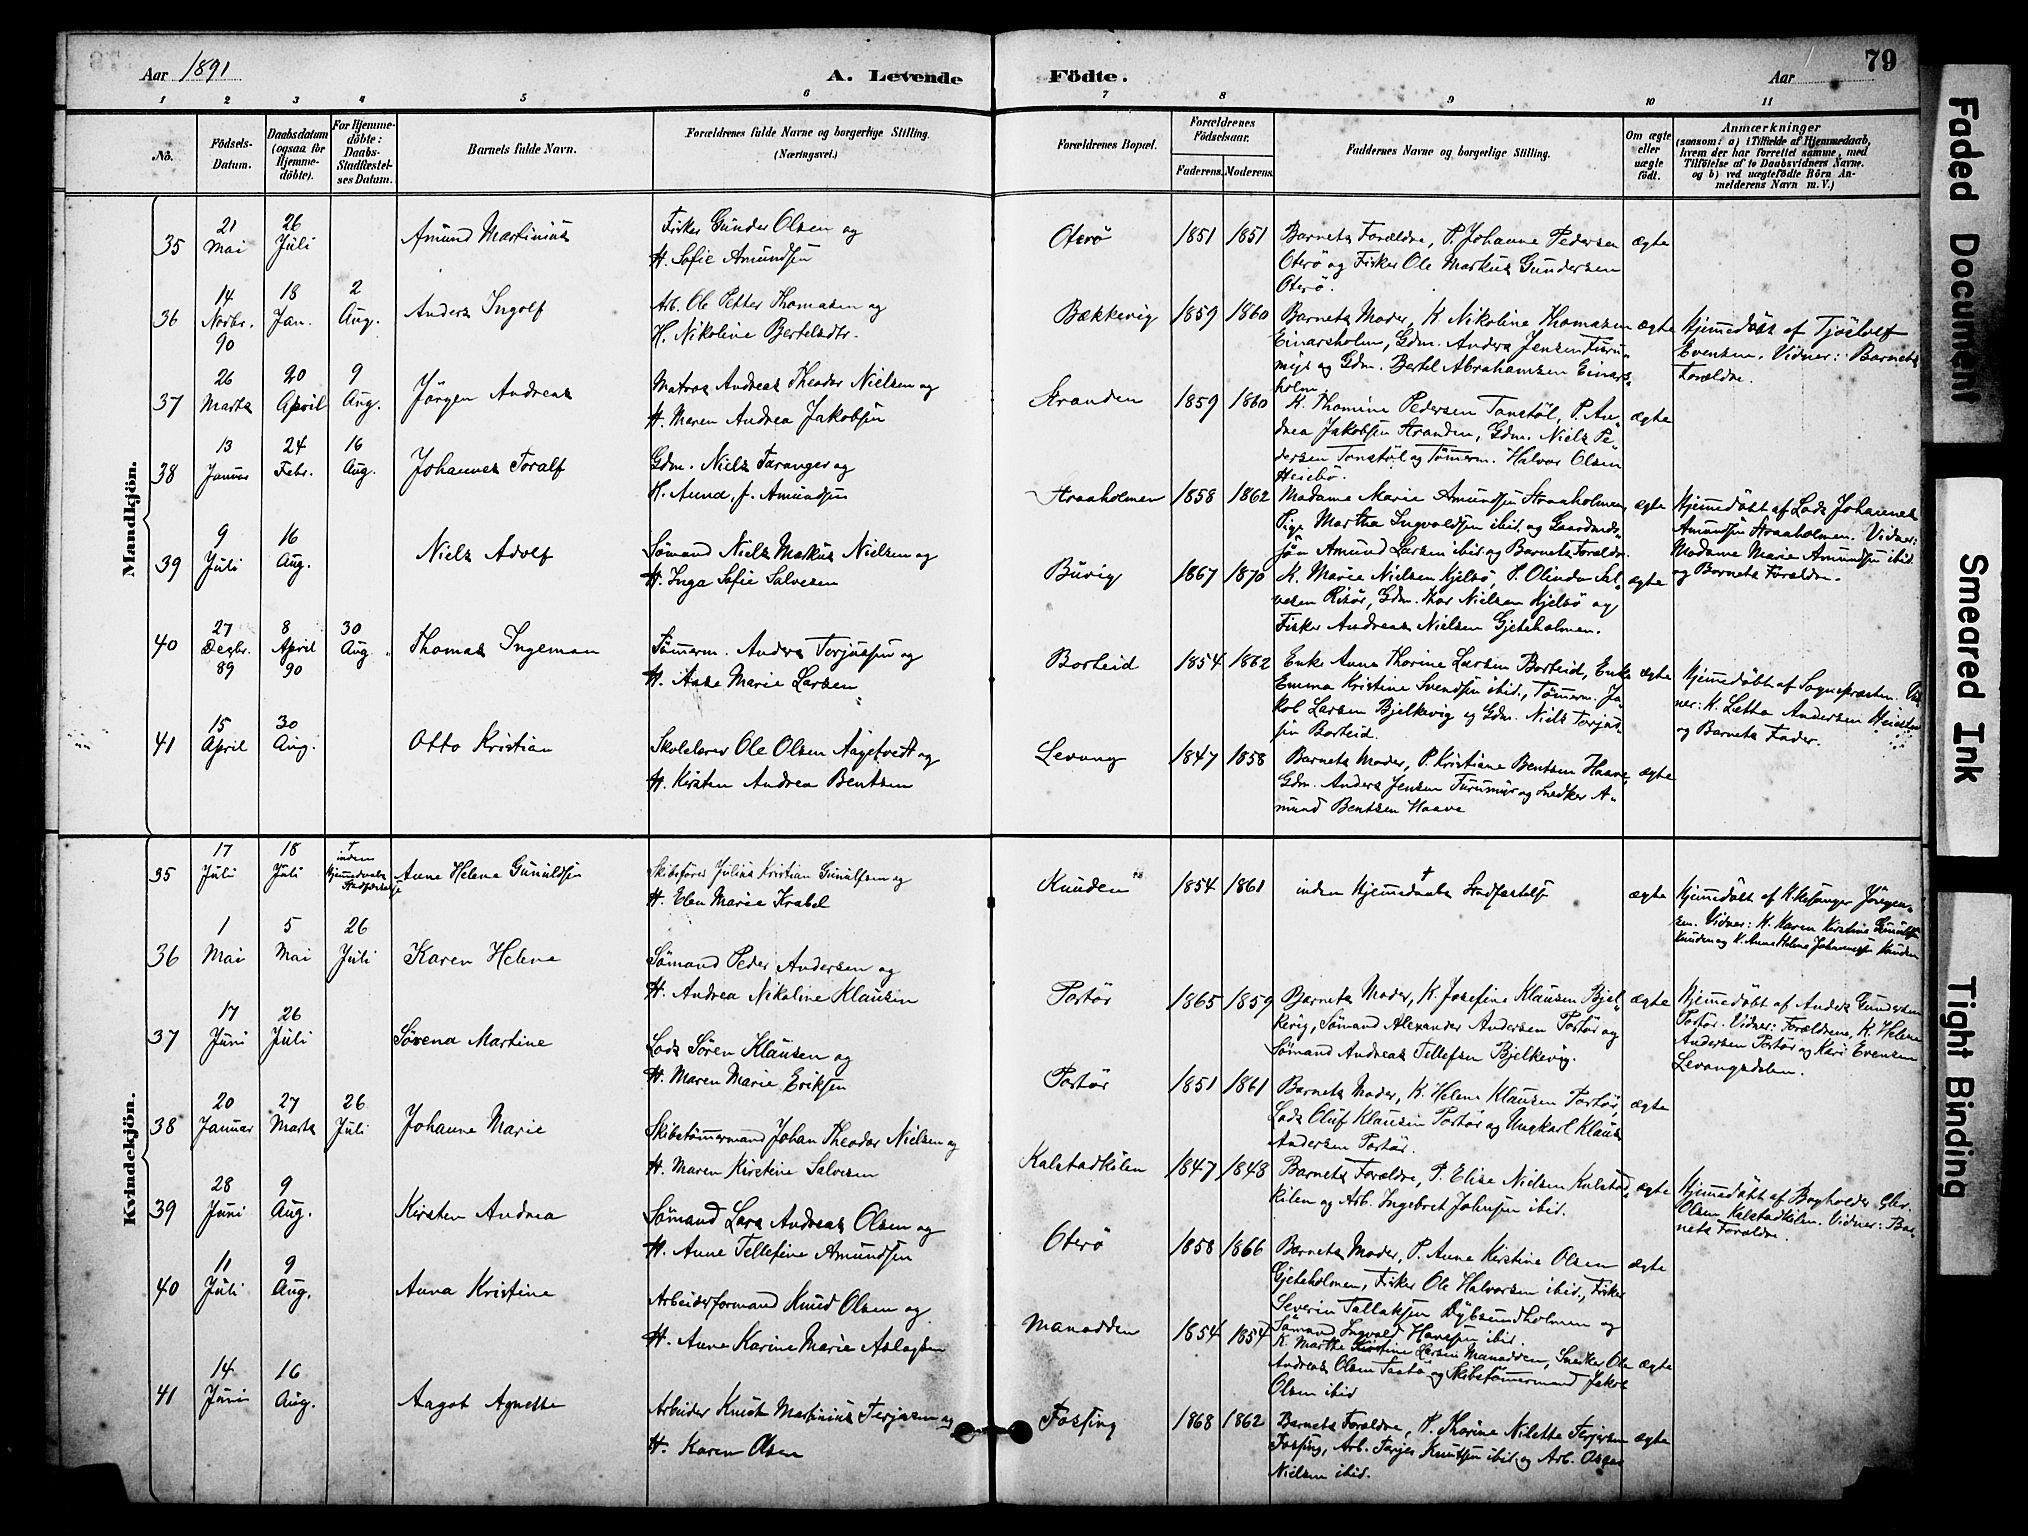 Aar 1891
A. Levende
Födte.
Aar
79
1 2 3 4 5 6 7 8 9 10 11
No.
Födsels-
Datum.
Daabsdatum
(ogsaa for
Hjemme-
döbte).
For Hjemme-
döbte:
Daabs-
Stadfæstel-
ses Datum.
Barnets fulde Navn.
Forældrenes fulde Navne og borgerlige Stilling.
(Næringsvei.)
Forældrenes Bopæl.
Forældrenes
Födselsaar.
Faderens. Moderens.
Faddernes Navne og borgerlige Stilling.
Om ægte
eller
uægte
födt.
Anmærkninger
(saasom: a) i Tilfælde af Hjemmedaab,
hvem der har forrettet samme, med
Tilföielse af to Daabsvidners Navne,
og b) ved uægtefödte Börn An-
melderens Navn m. V.)
Mandkjön.
35
21
Mai
26
Juli
Amund Martinius
Fisker Gunder Olsen og
H. Sofie Amundsen
Oterö
1851 1851
Barnets Forældre, P. Johanne Pedersen
Oterö og Fisker Ole Markus Gundersen
Oterö.
ægte
36
14
Novbr.
90
18
Jan.
2
Aug.
Anders Ingolf
Arb. Ole Petter Thomasen og
H. Nikoline Bertelsdtr.
Bækkevig
1859 1860
Barnets Moder, K. Nikoline Thomasen
Einarsholm, Gdm. Anders Jensen Furu-
myr og Gdm. Bertel Abrahamsen Einars-
holm
ægte
Hjemmedöbt af Tjöstolf
Evensen. Vidner: Barnets
Forældre.
37
26
Marts
20
April
9
Aug.
Jörgen Andreas
Matros Andreas Theodor Nielsen og
H. Maren Andrea Jakobsen
Stranden
1859 1860
K. Thomine Pedersen Tonstöl, P. An-
drea Jakobsen Stranden, Gdm. Niels Pe-
dersen Tonstöl og Tömerm. Halvor Olsen
Heisebö.
ægte
38
13
Januar
24
Febr.
16
Aug.
Johannes Toralf
Gdm. Niels Taranger og
H. Aund. f. Amundsen
Straaholmen
1858 1862
Madame Marie Amundsen Straaholmen,
Pige Martha Ingvaldsen ibid. og Gaardmds-
sön Amund Larsen ibid. og Barnets Forældre.
ægte
Hjemmedöbt af Lods Johannes
Amundsen Straaholmen. Vidner:
Madame Marie Amundsen ibid.
og Barnets Forældre.
39
9
Juli
16
Aug.
Niels Adolf
Sömand Niels Markus Nielsen og
H. Inga Sofie Salvesen
Buvig
1867 1870
K. Marie Nielsen Kjelsö, P. Olinda Sal-
vesen Risör, Gdm. Nielsen Kjelsö og
Fisker Andreas Nielsen Gjeteholmen.
ægte
40
27
Decbr.
89
8
April
90
30
Aug.
Thomas Ingeman
Tömmerm. Anders Terjussen og
H. Anne Marie Larsen
Borteid
1854 1862
Enke Anne Thorine Larsen Borteid, Enke
Emma Kristine Svendsen ibid., Tömerm. Ja-
kob Larsen Bjelkevig og Gdm. Niels Terjus-
sen Borteid.
ægte
Hjemmedöbt af Sognepræsten. Vid-
ner: K. Andersen
og Barnets Fader.
41
15
April
30
Aug.
Otto Kristian
Skolelærer Ole Olsen Aagetvedt og
H. Kirsten Andrea Bentsen
Levang
1847 1858
Barnets Moder, P. Kristiane Bentsen Haave,
Gdm. Anders Jensen Furumyr og Snedker A-
mund Bentsen Haave
ægte
Kvindekjön.
35
17
Juli
18
Juli
†
inden
Hjemmedaabs
Stadfæstelse
Anne Helene Gunuldsen
Skibsförer Julius Kristian Gunulfsen og
H. Elen Marie Krabel
Knuden
1854 1861
† inden Hjemmedaabs Stadfæstelse
ægte
Hjemmedöbt af Kirkesanger Jörgen-
sen. Vidner: K. Karen Kirstine Gunulfsen
Knuden og K. Anne Helene Johannessen Knuden
36
1
Mai
5
Mai
26
Juli
Karen Helene
Sömand Peder Andersen og
H. Andrea Nikoline Klausen
Portör
1865 1859
Barnets Moder, K. Josefine Klausen Bjel-
kevig, Sömand Alexander Andersen Portör og
Sömand Andreas Tellefsen Bjelkevig.
ægte
Hjemmedöbt af Anders Gundersen
Portör. Vidner: Forældrene, K. Helene
Andersen Portör og Kari Evensen
Levangsdalen.
37
17
Juni
26
Juli
Sörena Martine
Lods Sören Klausen og
H. Maren Marie Eriksen
Portör
1851 1861
Barnets Moder, K. Helene Klausen Portör,
Lods Oluf Klausen Portör og Ungkarl Klaus
Andersen Portör.
ægte
38
20
Januar
27
Marts
26
Juli
Johanne Marie
Skibstömmermand Johan Theodor Nielsen og
H. Maren Kirstine Salvesen
Kalstadkilen
1847 1848
Barnets Forældre, P. Elise Nielsen Kalstad-
kilen og Arb. Ingebret Johnsen ibid.
ægte
Hjemmedöbt af Bogholder Chr.
Olsen Kalstadkilen. Vidner: Bar-
nets Forældre.
39
28
Juni
9
Aug.
Kirsten Andrea
Sömand Lars Andreas Olsen og
H. Anne Tellefine Amundsen
Oterö
1858 1866
Barnets Moder, P. Anne Kirstine Olsen
Gjeteholmen, Fisker Ole Halvorsen ibid., Fisker
Severin Tallaksen Dybsundholmen og
Sömand Ingvald Hansen ibid.
ægte
40
11
Juli
9
Aug.
Anna Kristine
Arbeiderformand Knud Olsen og
H. Anne Karine Marie Aslagsen
Manodden
1854 1854
K. Marthe Kirstine Larsen Manodden, Snedker Ole
Andreas Olsen Tastö og Skibstömmermand Jakob
Olsen ibid
ægte
41
14
Juni
16
Aug.
Aagot Agnette
Arbeider Knut Martinius Terjesen og
H. Karen Olsen
Fossing
1868 1862
Barnets Forældre, P. Thorine Nilette Terjesen
Fossing, Arb. Terjes Knutsen ibid. og Arb. Oscar
Nielsen ibid.
ægte
Faded Document
Smeared Ink
Tight Binding